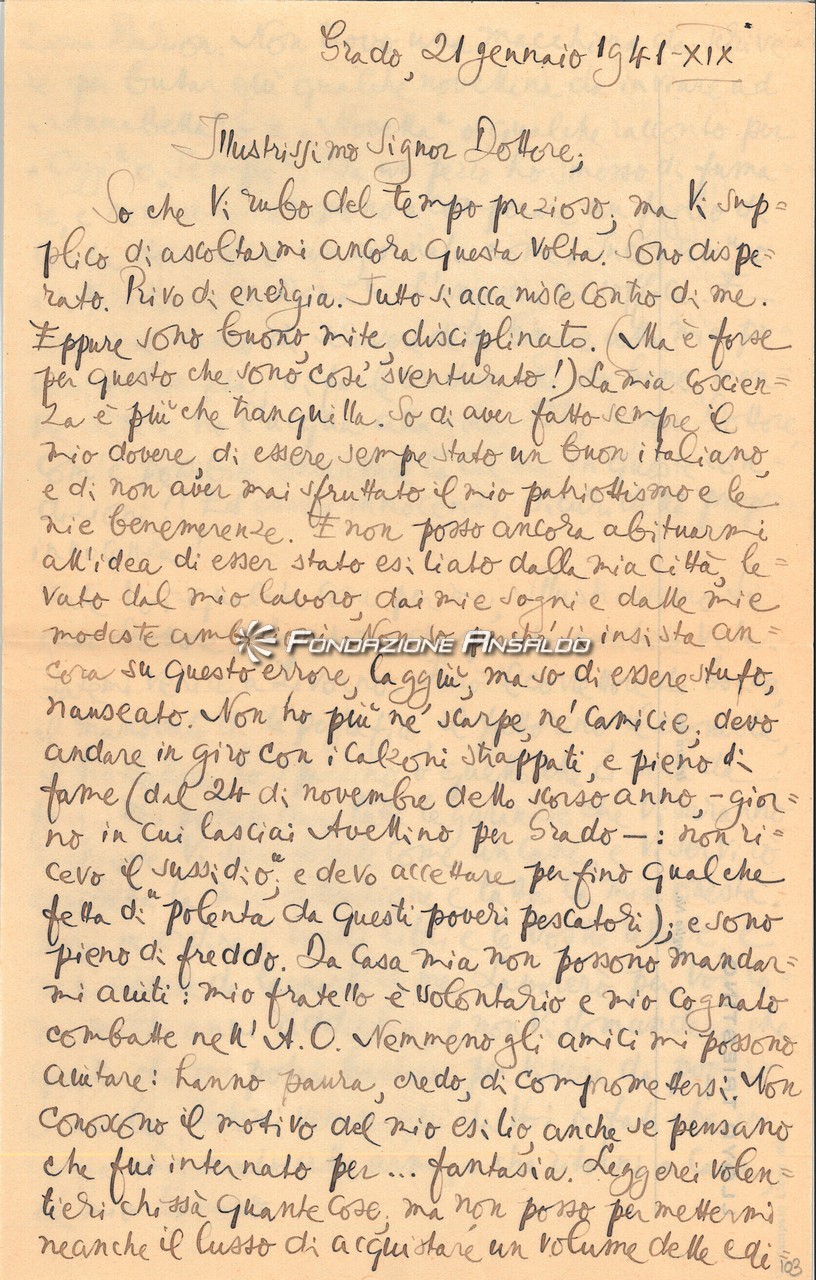 Grado, 21 gennaio 1941-XIX
Illustrissimo Signor Dottore;
So che Vi rubo del tempo prezioso; ma Vi sup=
plico di ascoltarmi ancora questa volta. Sono dispe=
rato. Privo di energia. Tutto si accanisce contro di me.
Eppure sono buono, mite, disciplinato. (Ma è forse
per questo che sono così sventurato!) La mia coscien=
za è più che tranquilla. So di aver fatto sempre il
mio dovere, di essere sempe stato un buon italiano,
e di non aver mai sfruttato il mio patriottismo e le
mie benemerenze. E non posso ancora abituarmi
all'idea di esser stato esiliato dalla mia città, le=
vato dal mio lavoro, dai mie sogni e dalle mie
modeste ambizioni. Non so perché si insista an=
FONDAZIONE ANSALDO
cora su questo errore, laggiù, ma so di essere stufo,
nauseato. Non ho più né scarpe, né camicie; devo
andare in giro con i calzoni strappati, e pieno di
fame (dal 24 di novembre dello scorso anno, - gior=
no in cui lasciai Avellino per Grado -: non ri=
cevo il "sussidio"; e devo accettare per fino qualche
fetta di polenta da questi poveri pescatori); e sono
pieno di freddo. Da casa mia non possono mandar=
mi aiuti: mio fratello è volontario e mio cognato
combatte nell'A.O. Nemmeno gli amici mi possono
aiutare: hanno paura, credo, di compromettersi. Non
conoscono il motivo del mio esilio, anche se pensano
che fui internato per... fantasia. Leggerei volen=
tieri chissà quante cose; ma non posso permettermi
neanche il lusso di acquistare un volume delle edi=
103